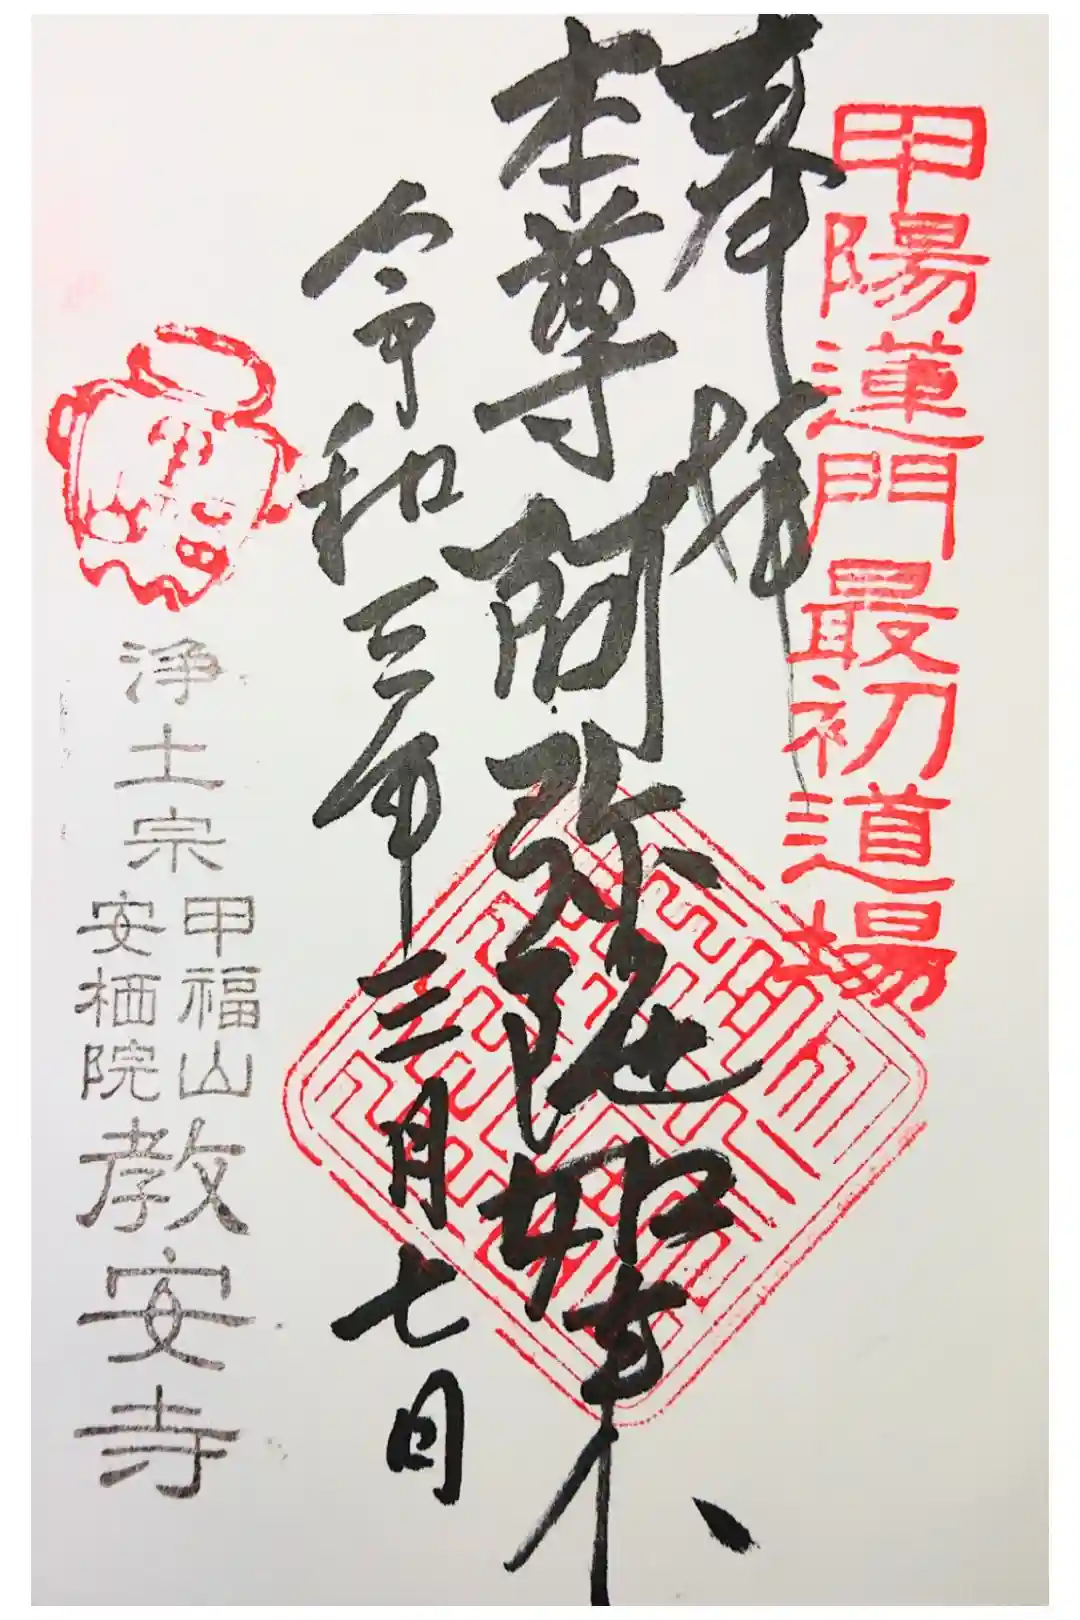 甲陽蓮門最初道場
奉拝
本尊阿弥陀如来
令和三年三月七日
浄土宗
甲福山
安栖院
教安寺